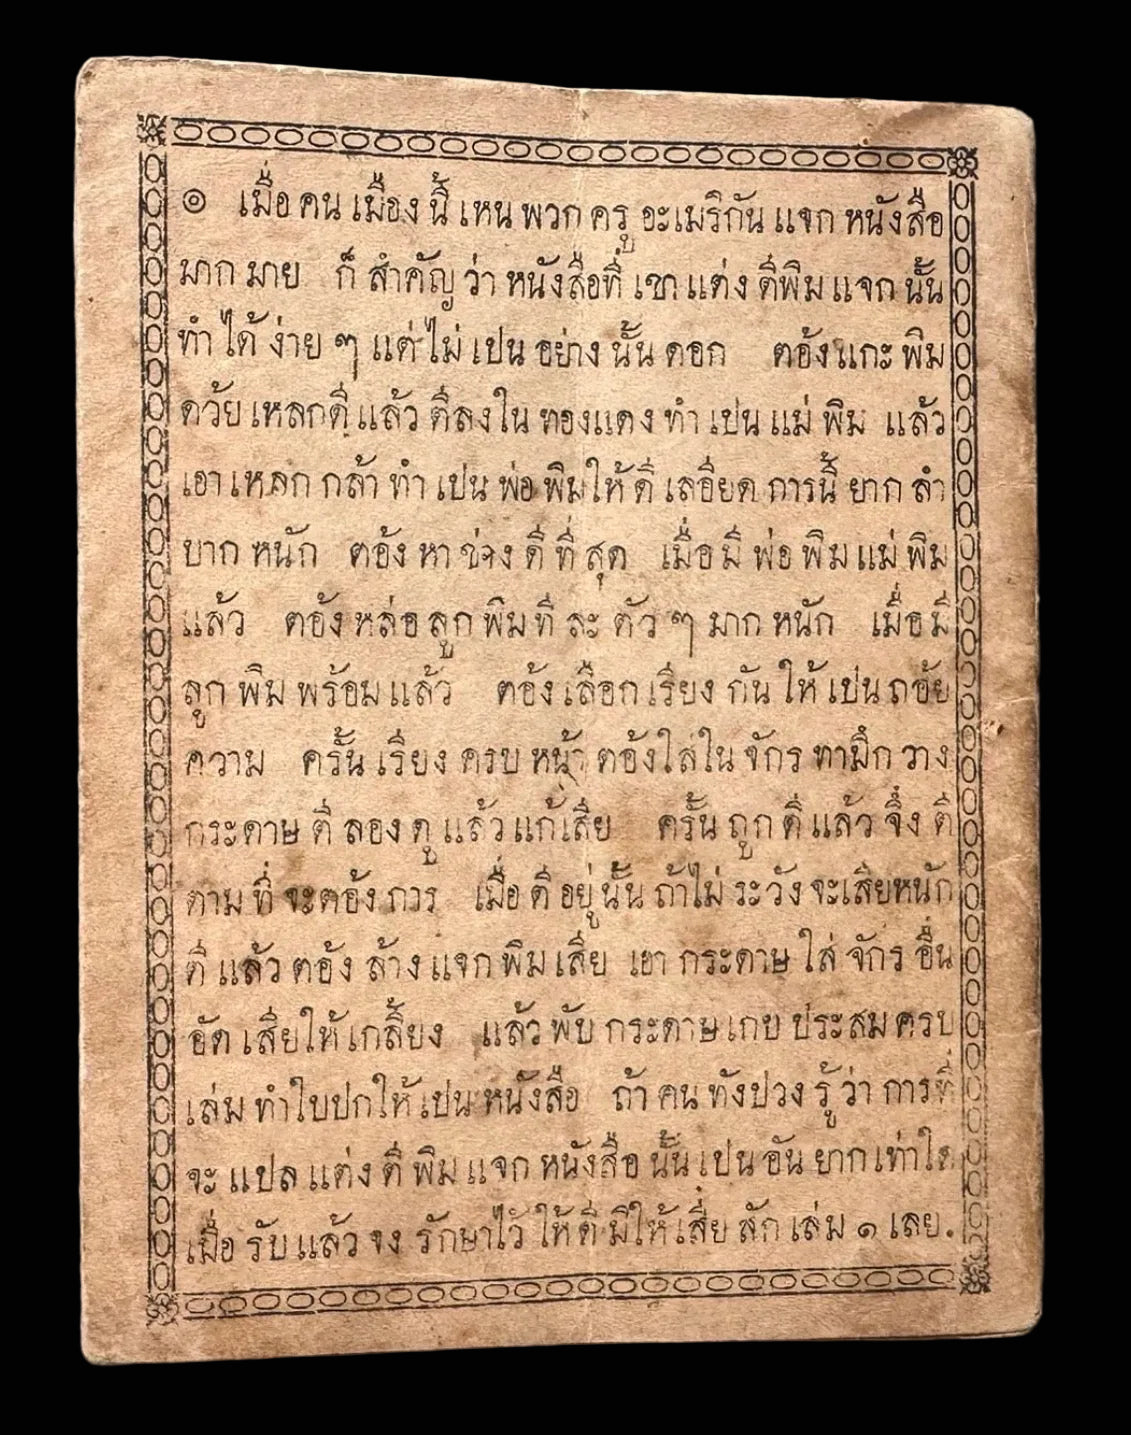 ๏ เมื่อ คน เมือง นี้ เหน พวก ครู อะเมริกัน แจก หนังสือ
มาก มาย ก็ สำคัญ ว่า หนังสือที่ เขา แต่ง ตีพิม แจก นั้น
ทำ ได้ ง่าย ๆ แต่ ไม่ เปน อย่าง นั้น ดอก ตอ้ง แกะ พิม
ดว้ย เหลกดี แล้ว ตีลงใน ทองแดง ทำ เปน แม่ พิม แล้ว
เอา เหลก กล้า ทำ เปน พ่อ พิมให้ ดี เลอียด การนี้ ยาก ลำ
บาก หนัก ตอ้ง หา ช่าง ดี ที่ สุด เมื่อ มี พ่อ พิม แม่ พิม
แล้ว ตอ้ง หล่อ ลูก พิม ที ละ ตัว ๆ มาก หนัก เมื่อ มี
ลูก พิม พร้อม แล้ว ตอ้ง เลือก เรียง กัน ให้ เปน ถอ้ย
ความ ครั้น เรียง ครบ หน้า ตอ้งใส่ใน จักร ทามึก วาง
กระดาษ ตี ลอง ดู แล้ว แก้เสีย ครั้น ถูก ดี แล้ว จึ่ง ตี
ตาม ที่ จะตอ้ง การ เมื่อ ตี อยู่ นั้น ถ้าไม่ ระวัง จะเสียหนัก
ตี แล้ว ตอ้ง ล้าง แจก พิม เสีย เอา กระดาษ ใส่ จักร อื่น
อัด เสียให้ เกลี้ยง แล้ว พับ กระดาษ เกบ ประสม ครบ
เล่ม ทำใบปกให้ เปน หนังสือ ถ้า คน ทังปวง รู้ ว่า การที่
จะ แปล แต่ง ตี พิม แจก หนังสือ นั้น เปน อัน ยาก เท่าใด
เมื่อ รับ แล้ว จง รักษาไว้ ให้ ดี มิให้ เสีย สัก เล่ม ๑ เลย.